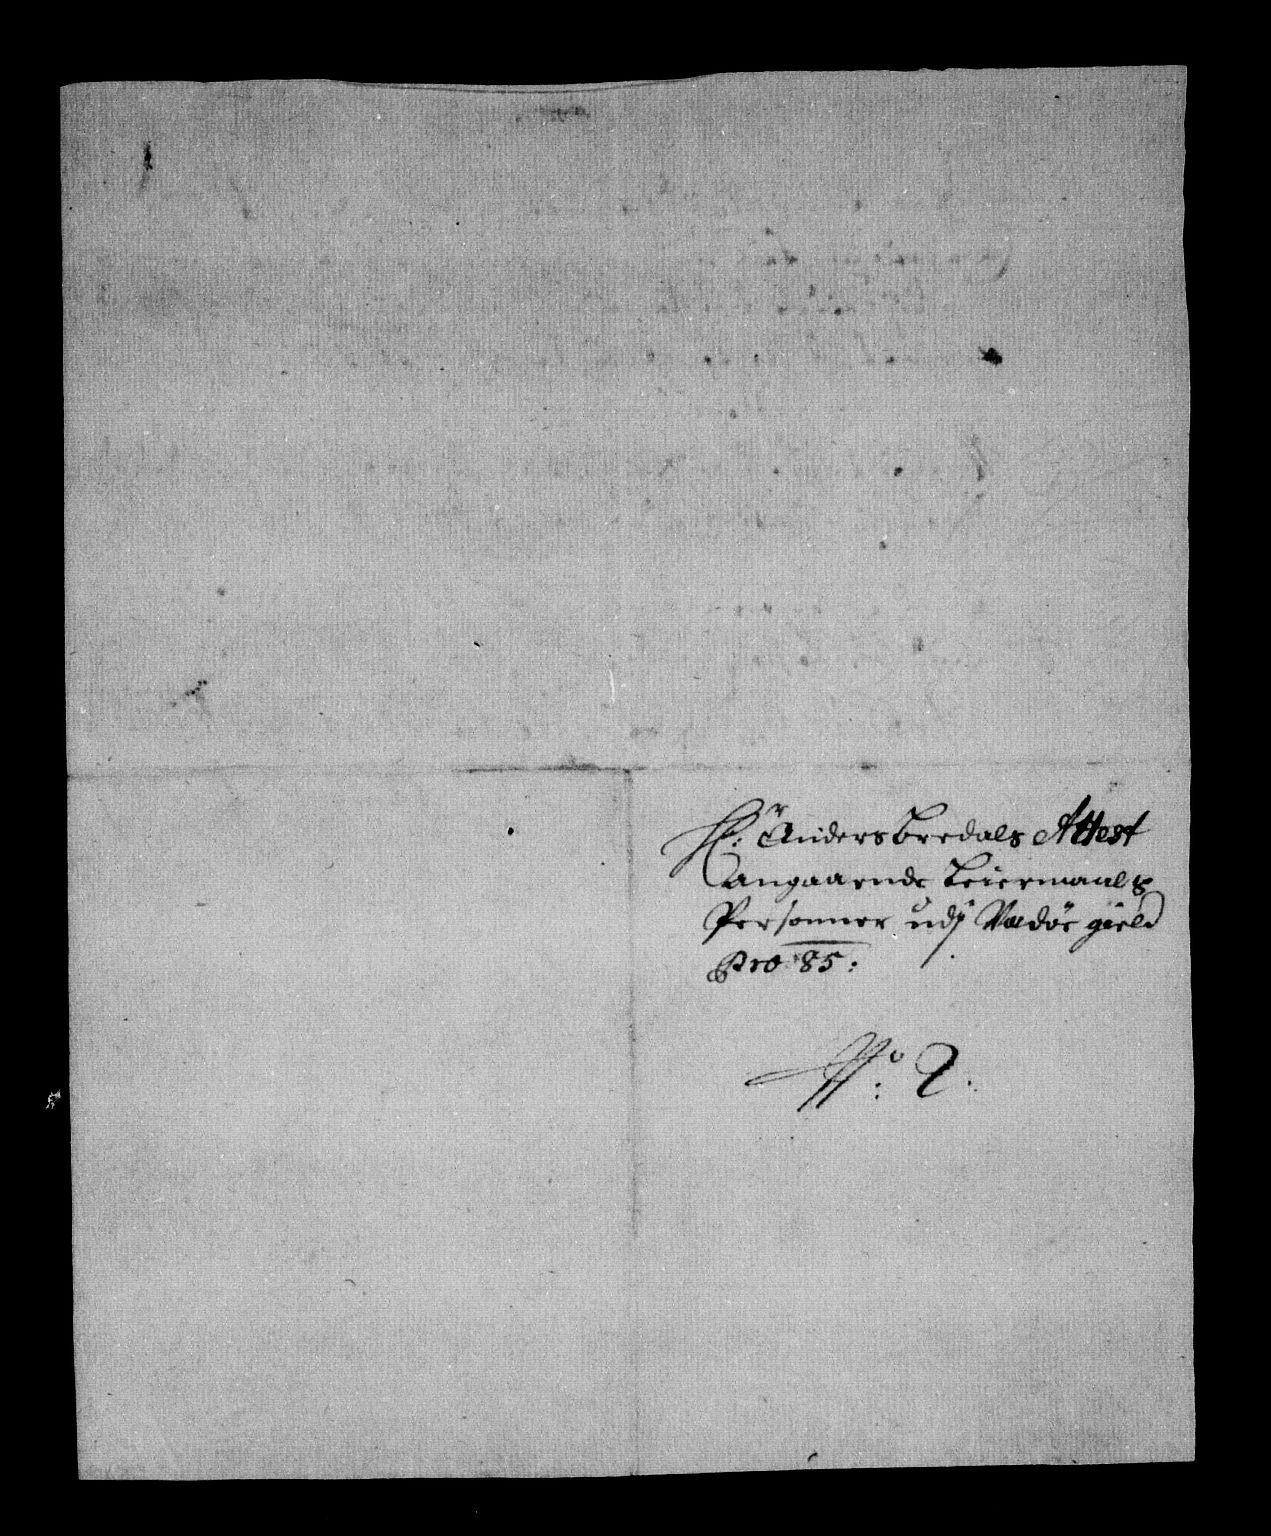 Hr: Anders Bredals Attest
angaaende Leiermaals
Personner udj Vadöe gield
Pro 85:
No: 2.